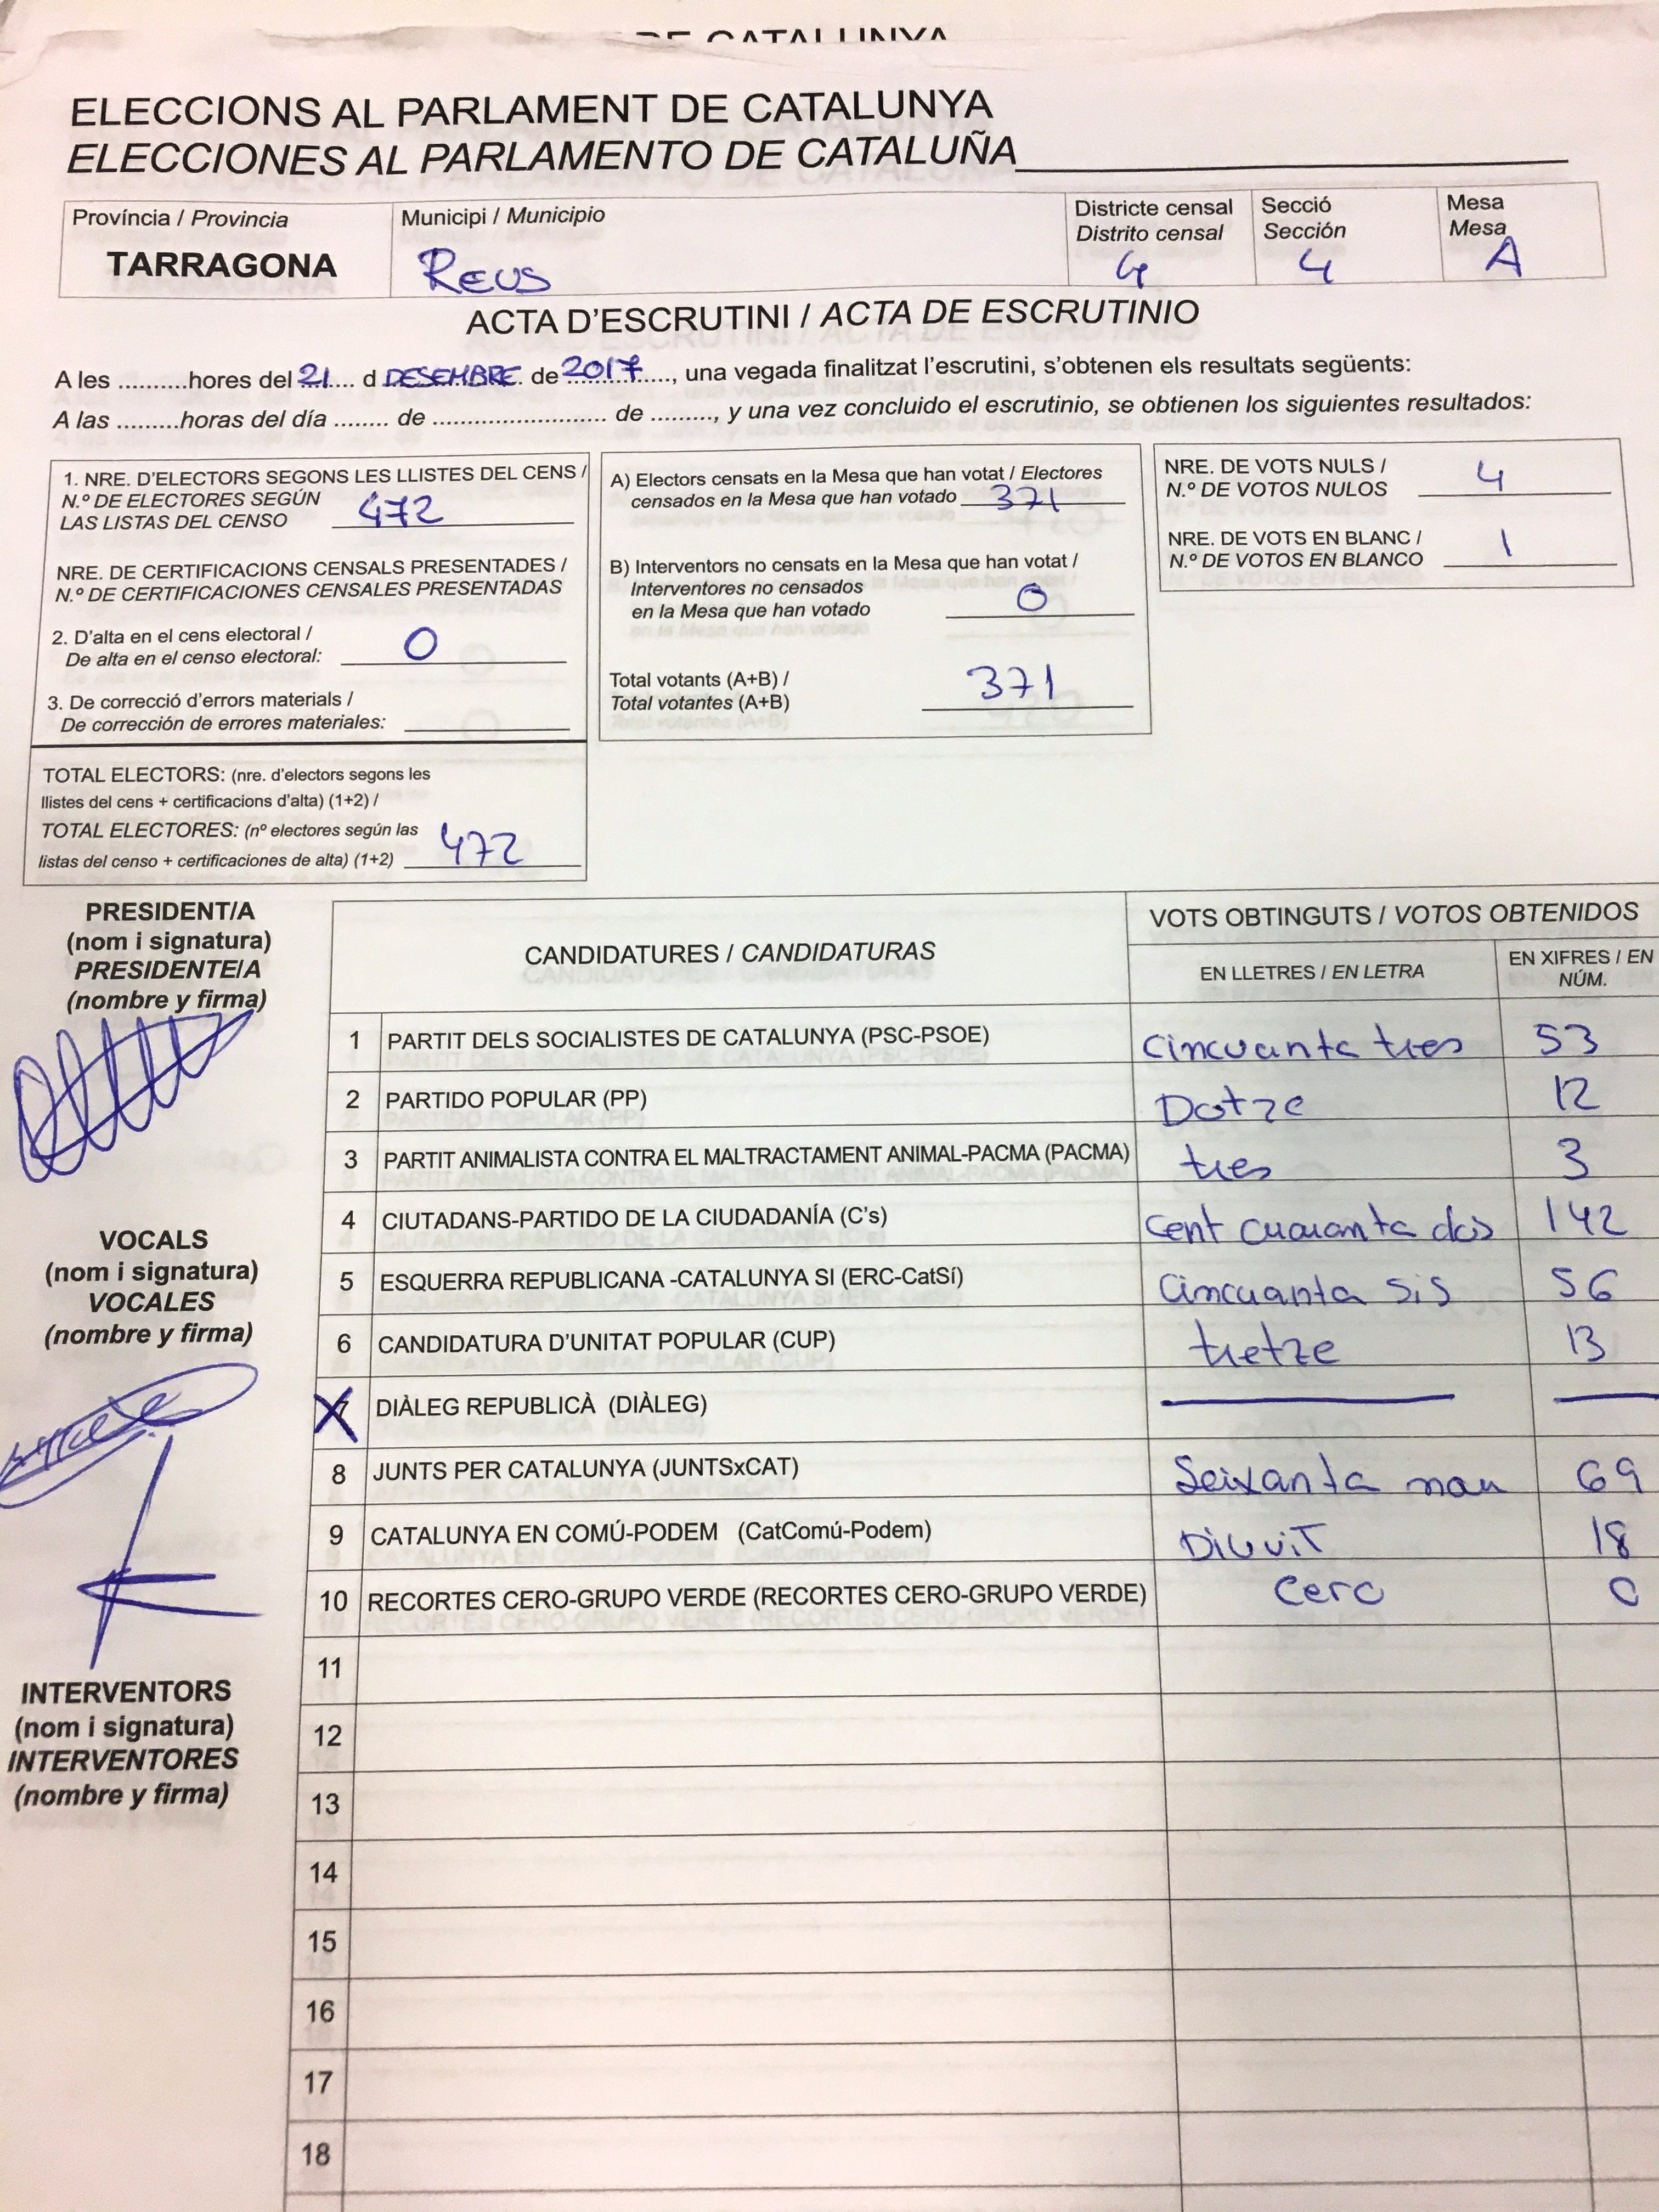 ELECCIONS AL PARLAMENT DE CATALUNYA
ELECCIONES AL PARLAMENTO DE CATALUÑA
Província / Provincia
TARRAGONA
Municipi / Municipio
REUS
Districte censal
Distrito censal
4
Secció
Sección
4
Mesa
Mesa
A
ACTA D'ESCRUTINI / ACTA DE ESCRUTINIO
A les ..........hores del 21.... d DESEMBRE. de 2017..., una vegada finalitzat l'escrutini, s'obtenen els resultats següents:
A las .........horas del día ........ de ........................ de ........., y una vez concluido el escrutinio, se obtienen los siguientes resultados:
1. NRE. D'ELECTORS SEGONS LES LLISTES DEL CENS /
N.º DE ELECTORES SEGÚN
LAS LISTAS DEL CENSO 472
NRE. DE CERTIFICACIONS CENSALS PRESENTADES /
N.º DE CERTIFICACIONES CENSALES PRESENTADAS
2. D'alta en el cens electoral /
De alta en el censo electoral: 0
3. De correcció d'errors materials /
De corrección de errores materiales:
TOTAL ELECTORS: (nre. d'electors segons les
llistes del cens + certificacions d'alta) (1+2) /
TOTAL ELECTORES: (nº electores según las
listas del censo + certificaciones de alta) (1+2) 472
A) Electors censats en la Mesa que han votat / Electores
censados en la Mesa que han votado 371
B) Interventors no censats en la Mesa que han votat /
Interventores no censados
en la Mesa que han votado 0
Total votants (A+B) /
Total votantes (A+B) 371
NRE. DE VOTS NULS /
N.º DE VOTOS NULOS 4
NRE. DE VOTS EN BLANC /
N.º DE VOTOS EN BLANCO 1
PRESIDENT/A
(nom i signatura)
PRESIDENTE/A
(nombre y firma)
VOCALS
(nom i signatura)
VOCALES
(nombre y firma)
INTERVENTORS
(nom i signatura)
INTERVENTORES
(nombre y firma)
CANDIDATURES / CANDIDATURAS
VOTS OBTINGUTS / VOTOS OBTENIDOS
EN LLETRES / EN LETRA
EN XIFRES / EN
NÚM.
1 PARTIT DELS SOCIALISTES DE CATALUNYA (PSC-PSOE) Cincuanta tres 53
2 PARTIDO POPULAR (PP) Dotze 12
3 PARTIT ANIMALISTA CONTRA EL MALTRACTAMENT ANIMAL-PACMA (PACMA) tres 3
4 CIUTADANS-PARTIDO DE LA CIUDADANÍA (C's) Cent cuaranta dos 142
5 ESQUERRA REPUBLICANA -CATALUNYA SI (ERC-CatSí) Cincuanta sis 56
6 CANDIDATURA D'UNITAT POPULAR (CUP) tretze 13
7 DIÀLEG REPUBLICÀ (DIÀLEG)
8 JUNTS PER CATALUNYA (JUNTSxCAT) Seixanta nou 69
9 CATALUNYA EN COMÚ-PODEM (CatComú-Podem) DIVUIT 18
10 RECORTES CERO-GRUPO VERDE (RECORTES CERO-GRUPO VERDE) Cero 0
11
12
13
14
15
16
17
18